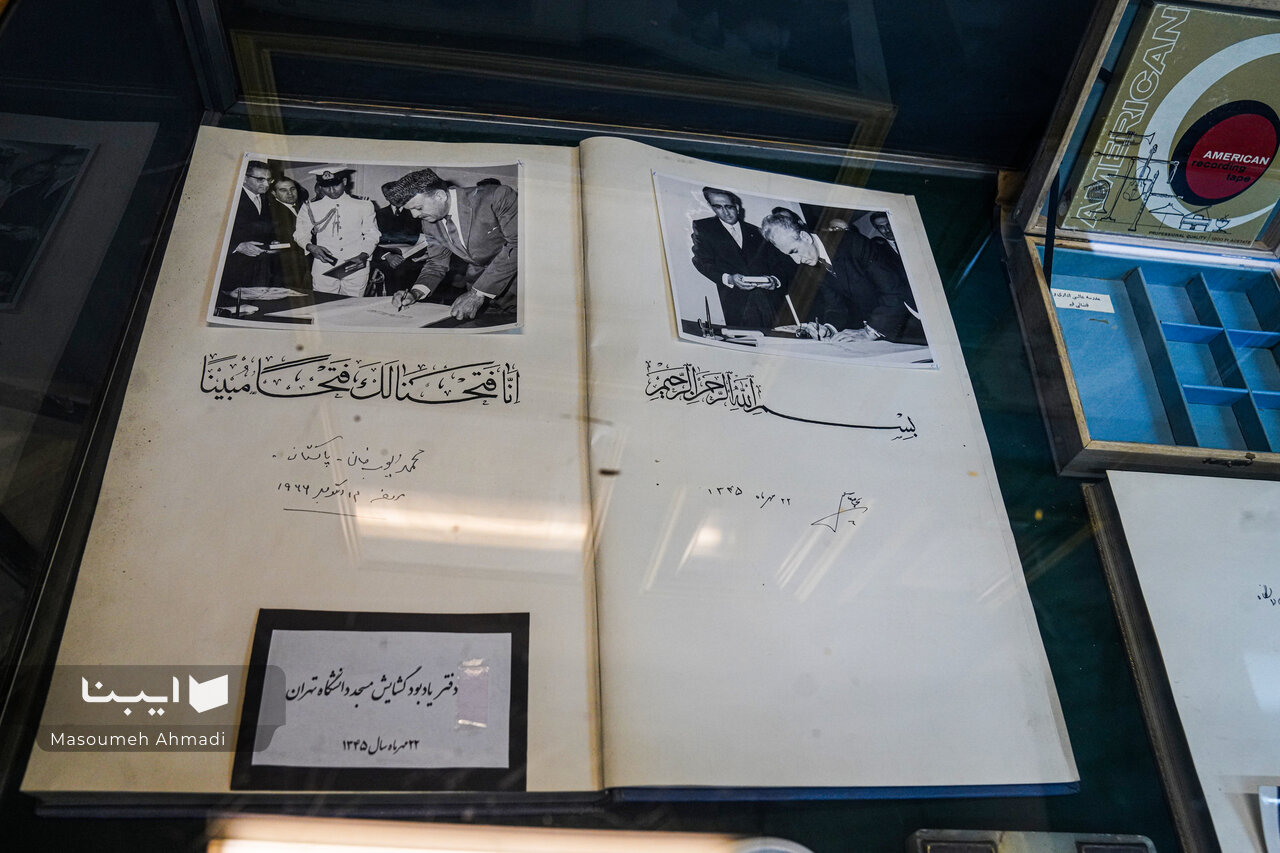 بسم الله الرحمن الرحیم
۲۲ مهرماه ۱۳۴۵
انّا فتحنا لك فتحاً مبيناً
محمد ایوب خان - پاکستان -
اکتوبر ۱۹۶۶
دفتر یادبود گشایش مسجد دانشگاه تهران
۲۲ مهرماه سال ۱۳۴۵
AMERICAN
AMERICAN
recording
tape
PROFESSIONAL QUALITY
مدرسه عالی اداری و
قضائی قم
ایبنا
Masoumeh Ahmadi